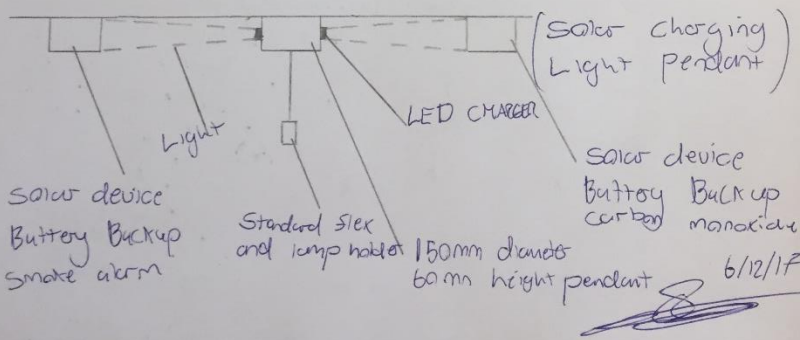 (Solar Charging
Light Pendant)
Light
LED CHARGER
Solar device
Battery Backup
Smoke alarm
Standard flex
and lamp holder
150mm diameter
60mm height pendant
Solar device
Battery Backup
carbon monoxide
6/12/17